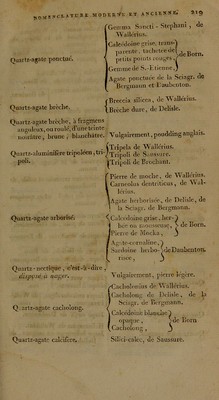 NOMENCLATURE MODERNE ET ANCIENNE. 219
Gemma Sancti - Stephani, de
Wallerius.
Calcédoine grise, trans-
parente, tachetée de
petits points rouges,
de Born.
Gemme de S.-Etienne,
Quartz-agate ponctué.
Agate ponctuée de la Sciagr. de
Bergmann et Daubenton.
Breccia silicea, de Wallérius.
Quartz-agate brèche.
Brèche dure, de Delisle.
Quartz-agate brèche, à fragmens
anguleux, ou roulé, d'une teinte
sombre, brune, blanchâtre.
Vulgairement, poudding anglais.
Quartz-aluminifère tripoléen, tri-
poli.
Tripela de Wallérius.
Tripoli de Saussure.
Tripoli de Brochant.
Pierre de moche, de Wallérius.
Carneolus dentriticus, de Wal-
lérius.
Agate herborisée, de Delisle, de
la Sciagr. de Bergmann.
Quartz-agate arborisé.
Calcédoine grise, her-
de Born.
Pierre de Mocha,
Agate-cornaline,
Sardoine herbo-
risée,
de Daubenton.
Quartz-nectique, c'est-à-dire,
disposé à nager.
Vulgairement, pierre légère.
Cacholonius de Wallérius.
Cacholong de Delisle, de la
Sciagr. de Bergmann.
Quartz-agate cacholong.
Calcédoine blanche
opaque,
de Born
Cacholong,
Quartz-agate calcifère.
Silici-calce, de Saussure.